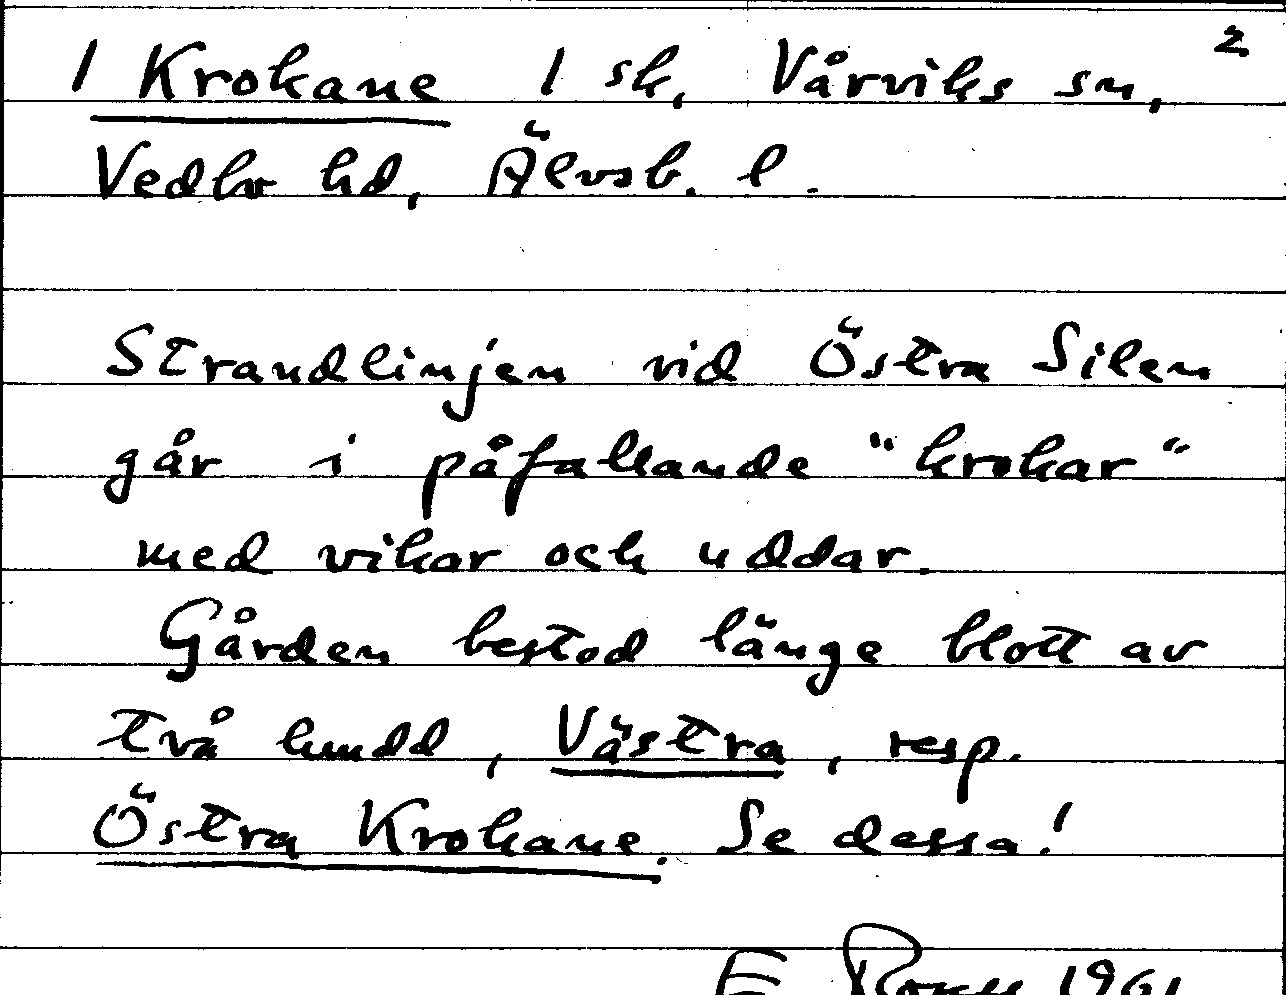 2
1 Krokane 1 sk, Vårviks sn,
Vedbo hd, Älvsb. l.
Strandlinjen vid Östra Silen
går i påfallande "krokar"
med vikar och uddar.
Gården bestod länge blott av
två hmdd, Västra, resp.
Östra Krokane. Se dessa!
E 1961